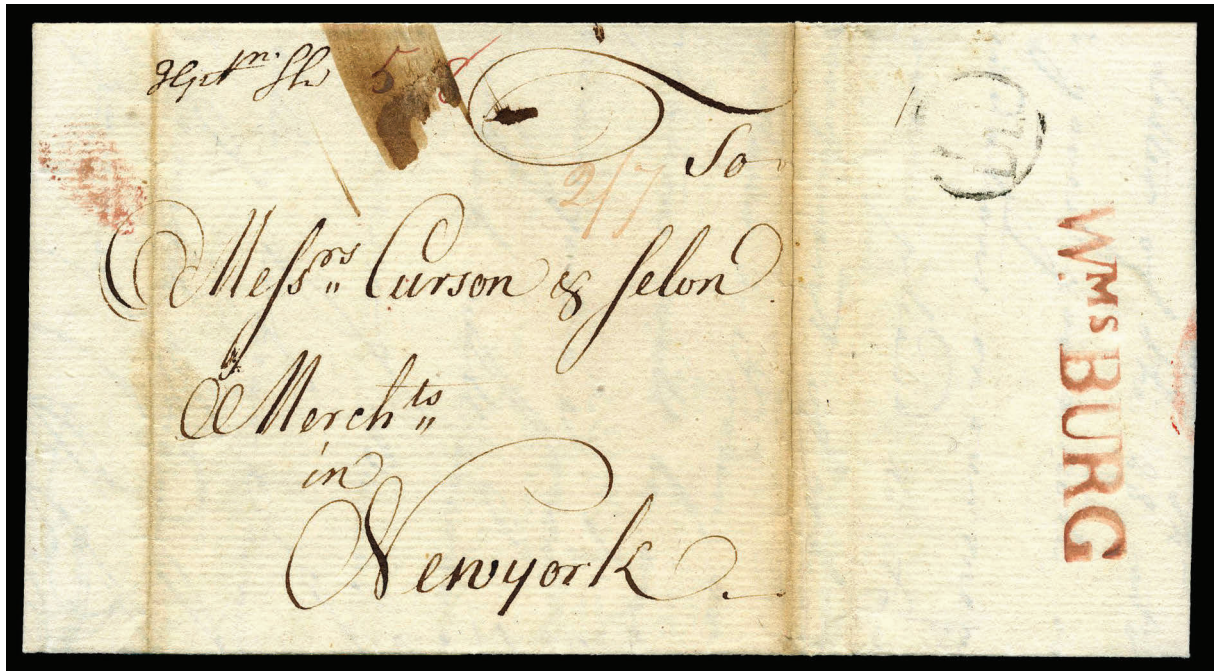 5
To
2/7
Messrs Curson & Selon
Merchts
in
Newyork.
WMS BURG